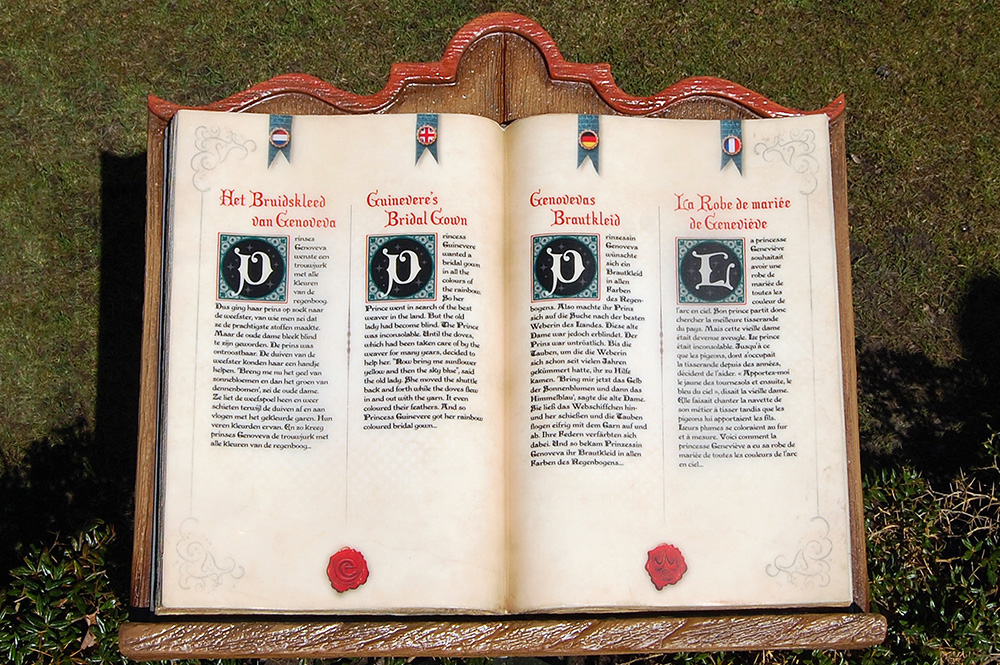 Het Bruidskleed
van Genoveva
Prinses
Genoveva
wenste een
trouwjurk
met alle
kleuren
van de
regenboog.
Dus ging haar prins op zoek naar
de weefster, van wie men zei dat
ze de prachtigste stoffen maakte.
Maar de oude dame bleek blind
te zijn geworden. De prins was
ontroostbaar. De duiven van de
weefster konden haar een handje
helpen. 'Breng me nu het geel van
zonnebloemen en dan het groen van
dennenbomen', zei de oude dame.
Ze liet de weefspoel heen en weer
schieten terwijl de duiven af en aan
vlogen met het gekleurde garen. Hun
veren kleurden ervan. En zo kreeg
prinses Genoveva de trouwjurk met
alle kleuren van de regenboog...
Guinevere's
Bridal Gown
Princess
Guinevere
wanted a
bridal gown
in all the
colours of
the rainbow.
So her
Prince went in search of the best
weaver in the land. But the old
lady had become blind. The Prince
was inconsolable. Until the doves,
which had been taken care of by the
weaver for many years, decided to
help her. "Now bring me sunflower
yellow and then the sky blue", said
the old lady. She moved the shuttle
back and forth while the doves flew
in and out with the yarn. It even
coloured their feathers. And so
Princess Guinevere got her rainbow
coloured bridal gown...
Genovevas
Brautkleid
Prinzessin
Genoveva
wünschte
sich ein
Brautkleid
in allen
Farben
des Regen-
bogens. Also machte ihr Prinz
sich auf die Suche nach der besten
Weberin des Landes. Diese alte
Dame war jedoch erblindet. Der
Prinz war untröstlich. Bis die
Tauben, um die die Weberin
sich schon seit vielen Jahren
gekümmert hatte, ihr zu Hilfe
kamen. 'Bring mir jetzt das Gelb
der Sonnenblumen und dann das
Himmelblau', sagte die alte Dame.
Sie ließ das Webschiffchen hin-
und her schießen und die Tauben
flogen eifrig mit dem Garn auf und
ab. Ihre Federn verfärbten sich
dabei. Und so bekam Prinzessin
Genoveva ihr Brautkleid in allen
Farben des Regenbogens...
La Robe de mariée
de Geneviève
La princesse
Geneviève
souhaitait
avoir une
robe de
mariée de
toutes les
couleur de
l'arc en ciel. Son prince partit donc
chercher la meilleure tisserande
du pays. Mais cette vieille dame
était devenue aveugle. Le prince
était inconsolable. Jusqu'à ce
que les pigeons, dont s'occupait
la tisserande depuis des années,
décident de l'aider. « Apportez-moi
le jaune des tournesols et ensuite, le
bleu du ciel », disait la vieille dame.
Elle faisait chanter la navette de
son métier à tisser tandis que les
pigeons lui apportaient les fils.
Leurs plumes se coloraient au fur
et à mesure. Voici comment la
princesse Geneviève a eu sa robe de
mariée de toutes les couleurs de l'arc
en ciel...